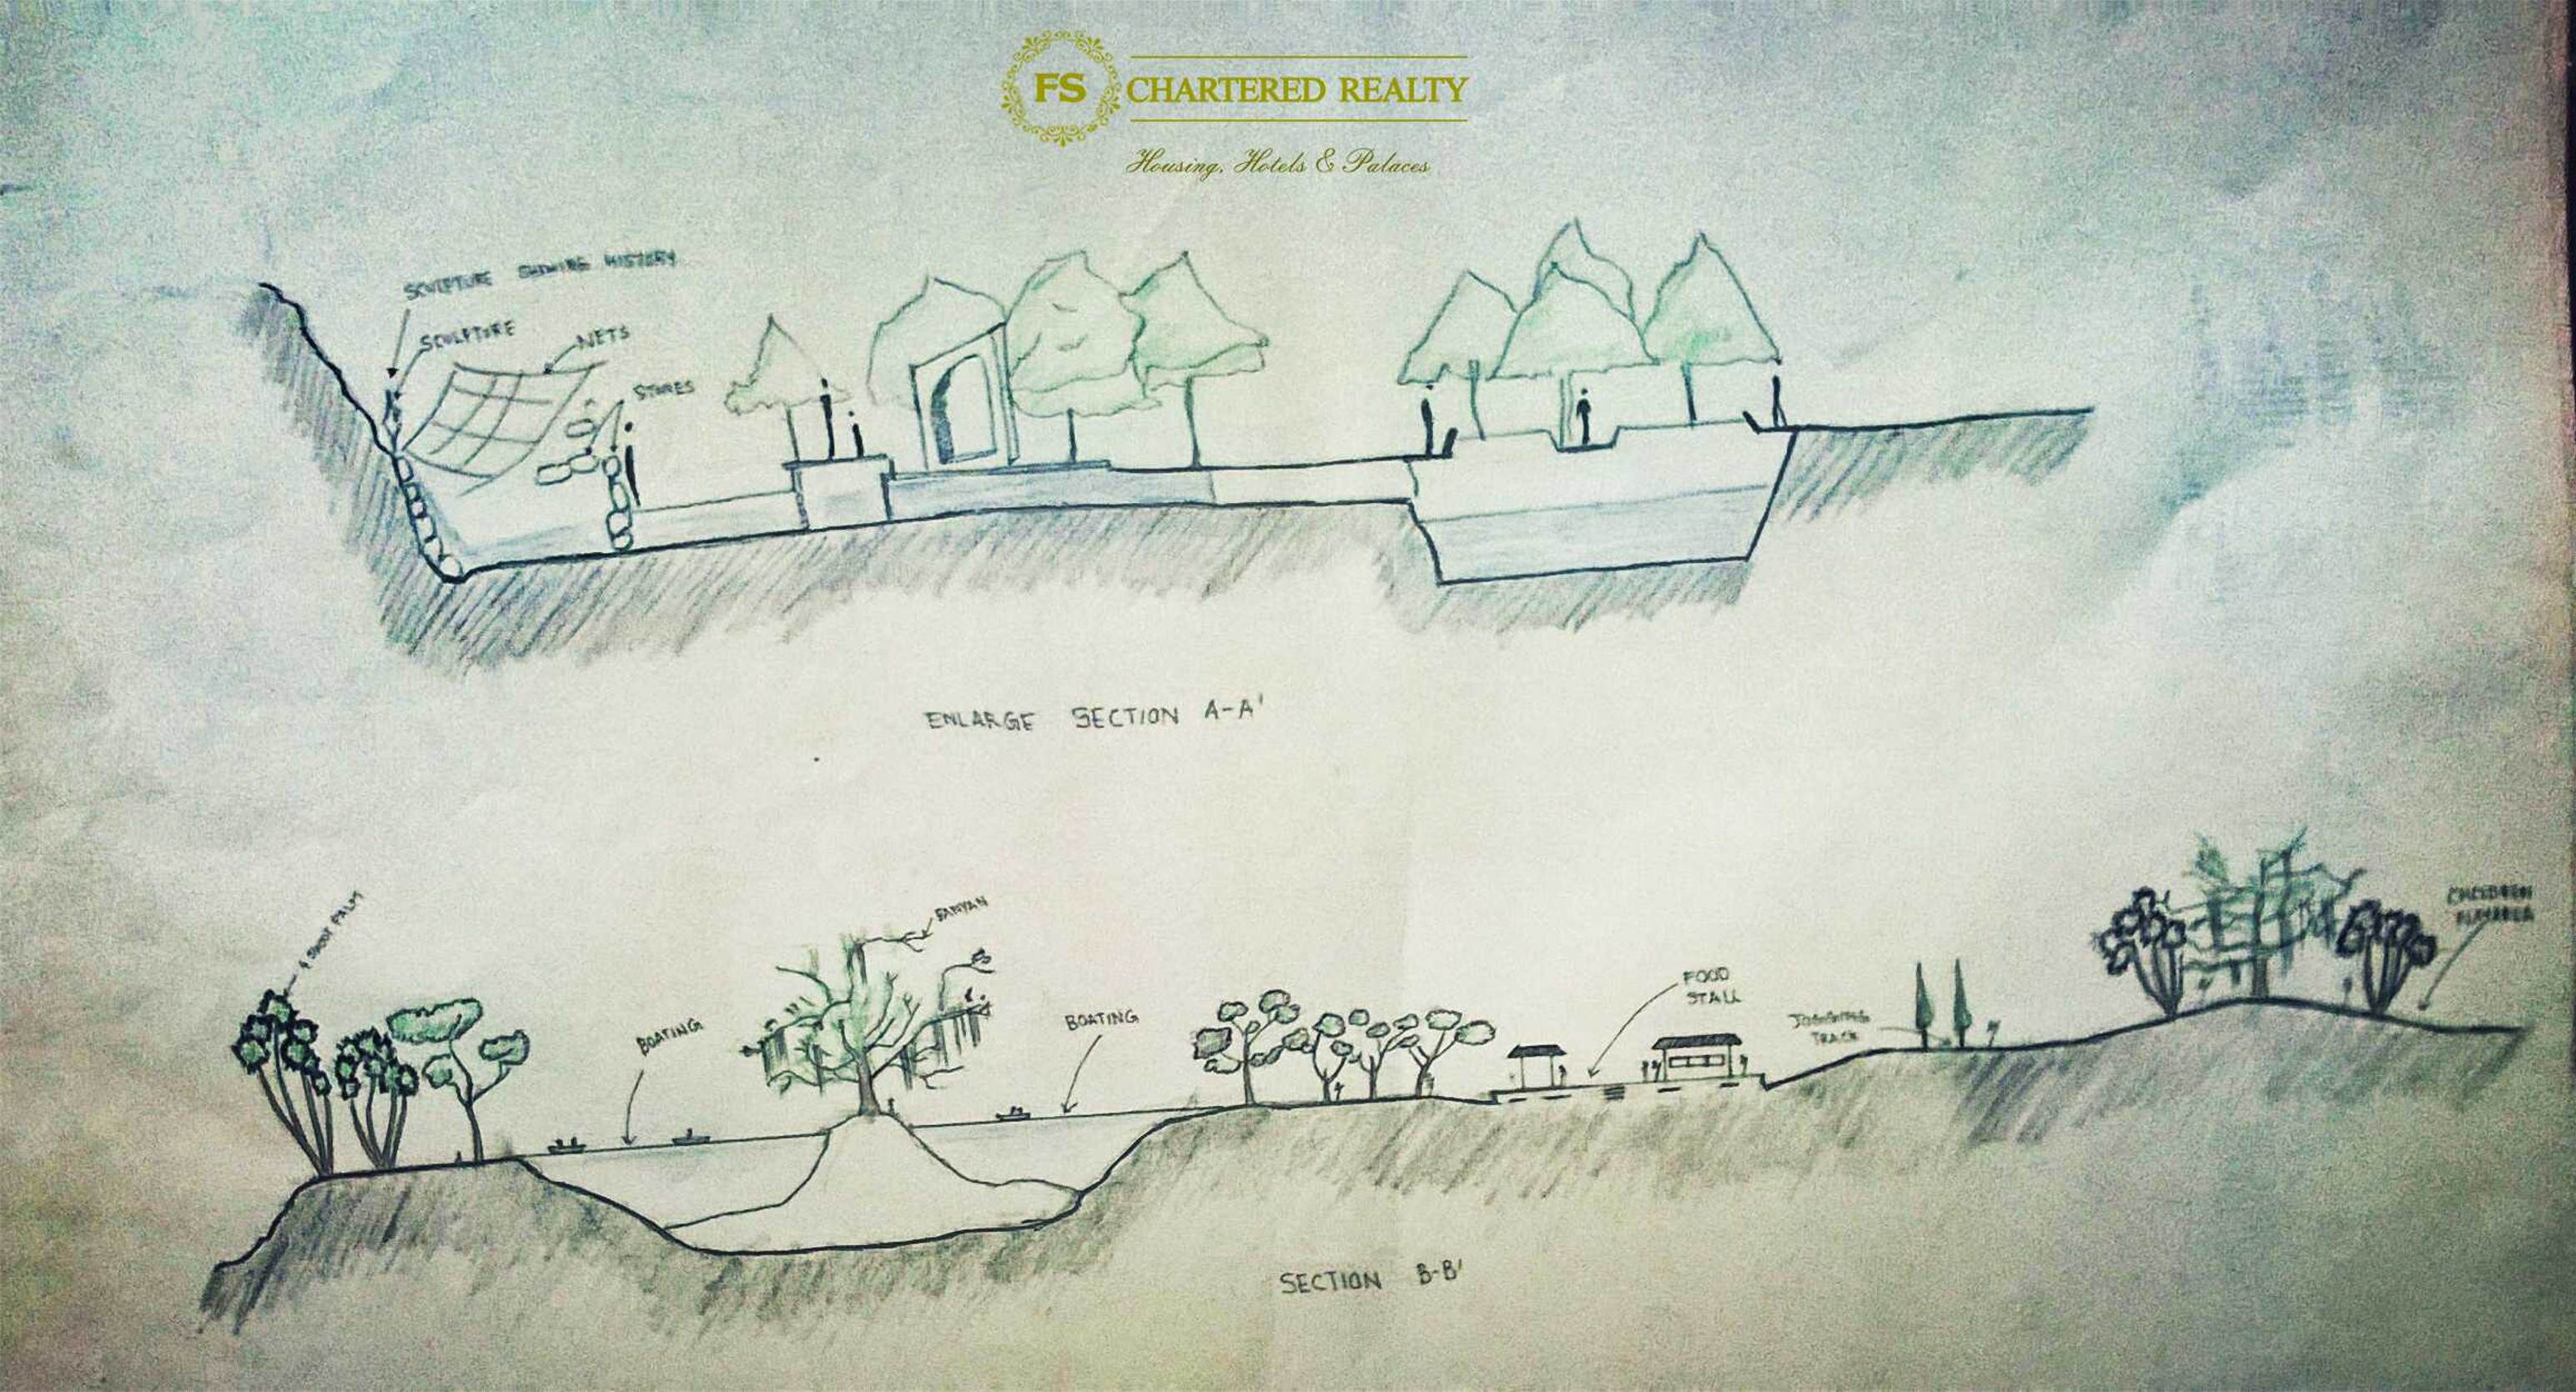 FS CHARTERED REALTY
Housing, Hotels & Palaces
SCULPTURE SHOWING HISTORY
SCULPTURE
NETS
STONES
ENLARGE SECTION A-A'
PALM
BANYAN
BOATING
BOATING
FOOD
STALL
JOGGING
TRACK
CHILDREN
PLAYAREA
SECTION B-B'